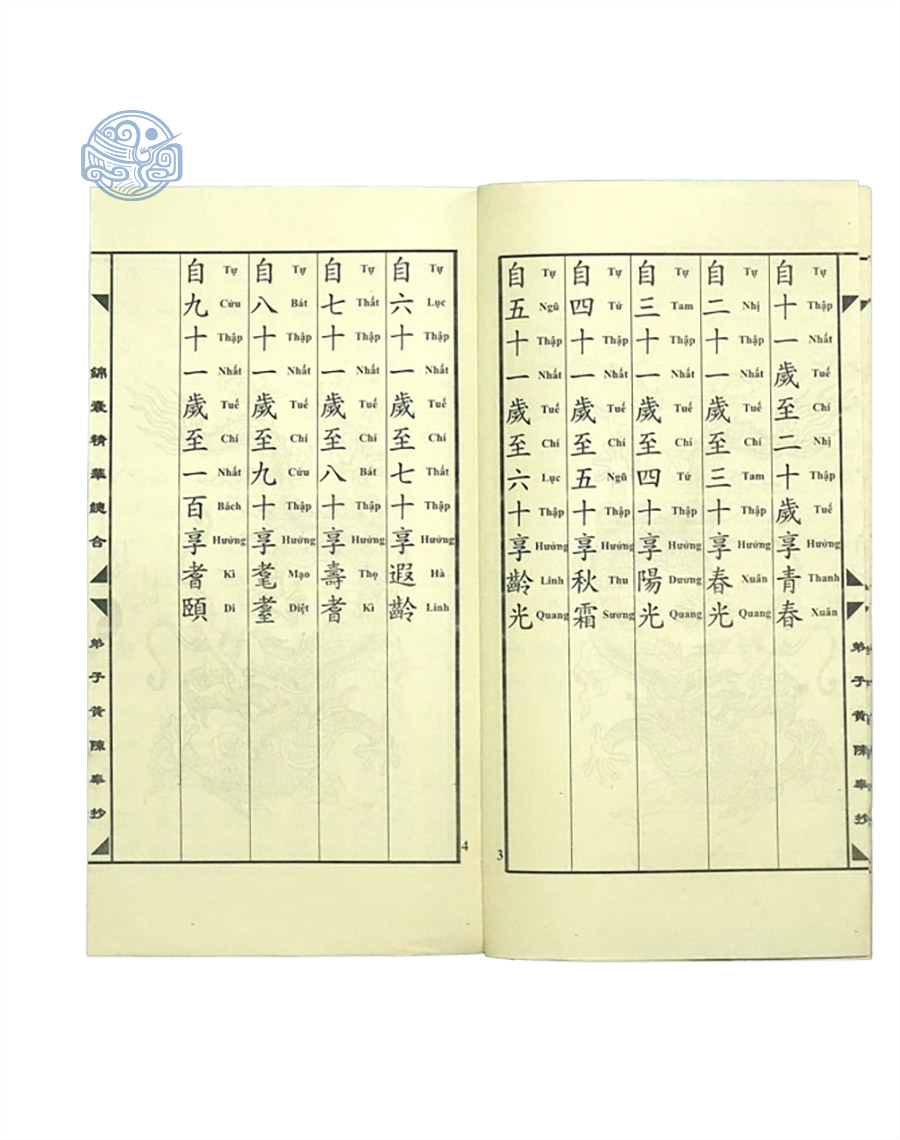 自十一歲至二十歲享青春
Tự Thập Nhất Tuế Chí Nhị Thập Tuế Hưởng Thanh Xuân
自二十一歲至三十享春光
Tự Nhị Thập Nhất Tuế Chí Tam Thập Hưởng Xuân Quang
自三十一歲至四十享陽光
Tự Tam Thập Nhất Tuế Chí Tứ Thập Hưởng Dương Quang
自四十一歲至五十享秋霜
Tự Tứ Thập Nhất Tuế Chí Ngũ Thập Hưởng Thu Sương
自五十一歲至六十享齡光
Tự Ngũ Thập Nhất Tuế Chí Lục Thập Hưởng Linh Quang
弟子黃陳奉抄
3
自六十一歲至七十享遐齡
Tự Lục Thập Nhất Tuế Chí Thất Thập Hưởng Hà Linh
自七十一歲至八十享壽耆
Tự Thất Thập Nhất Tuế Chí Bát Thập Hưởng Thọ Kì
自八十一歲至九十享耄耋
Tự Bát Thập Nhất Tuế Chí Cửu Thập Hưởng Mạo Diệt
自九十一歲至一百享耆頤
Tự Cửu Thập Nhất Tuế Chí Nhất Bách Hưởng Kì Di
錦囊精華總合
弟子黃陳奉抄
4